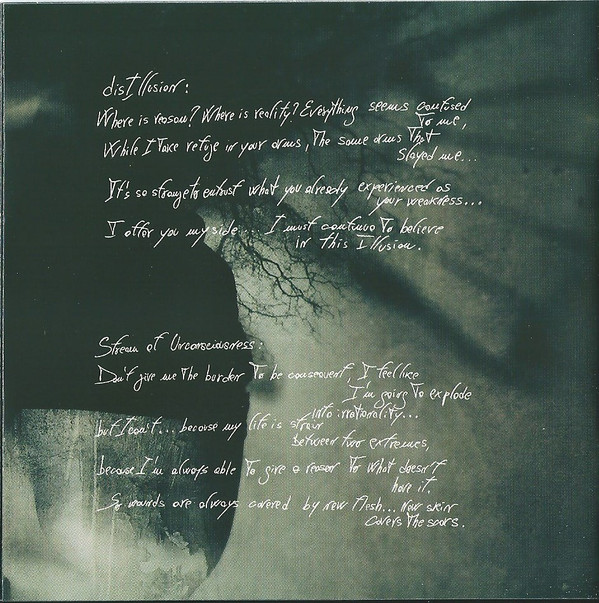 disIllusion:
Where is reason? Where is reality? Everything seems confused
To me,
While I Take refuge in your arms, The same arms That
slayed me...
It's so strange to entrust what you already experienced as
your weakness...
I offer you my side... I must continue To believe
in this Illusion.
Stream of Unconsciousness:
Don't give me The burden To be consequent, I feel like
I'm going To explode
into irrationality...
but I can't... because my life is strain
between two extremes,
because I'm always able To give a reason To what doesn't
have it.
So wounds are always covered by new flesh... New skin
covers The scars.